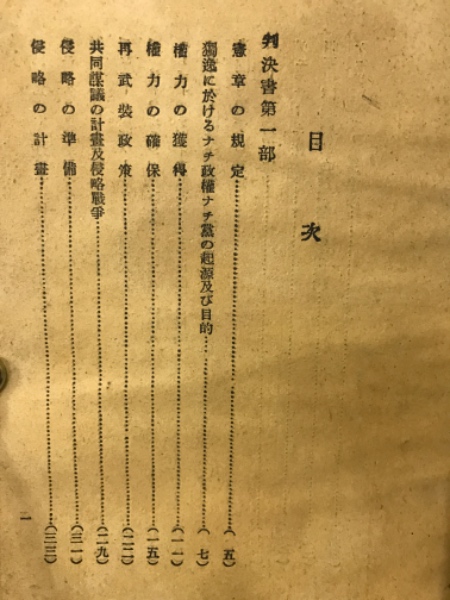 目次
判決書第一部
憲章の規定…………(五)
獨逸に於けるナチ政權ナチ黨の起源及び目的…………(七)
權力の獲得…………(一一)
權力の確保…………(一五)
再武裝政策…………(二二)
共同謀議の計畫及侵略戰爭…………(二九)
侵略の準備…………(三一)
侵略の計畫…………(三三)
一